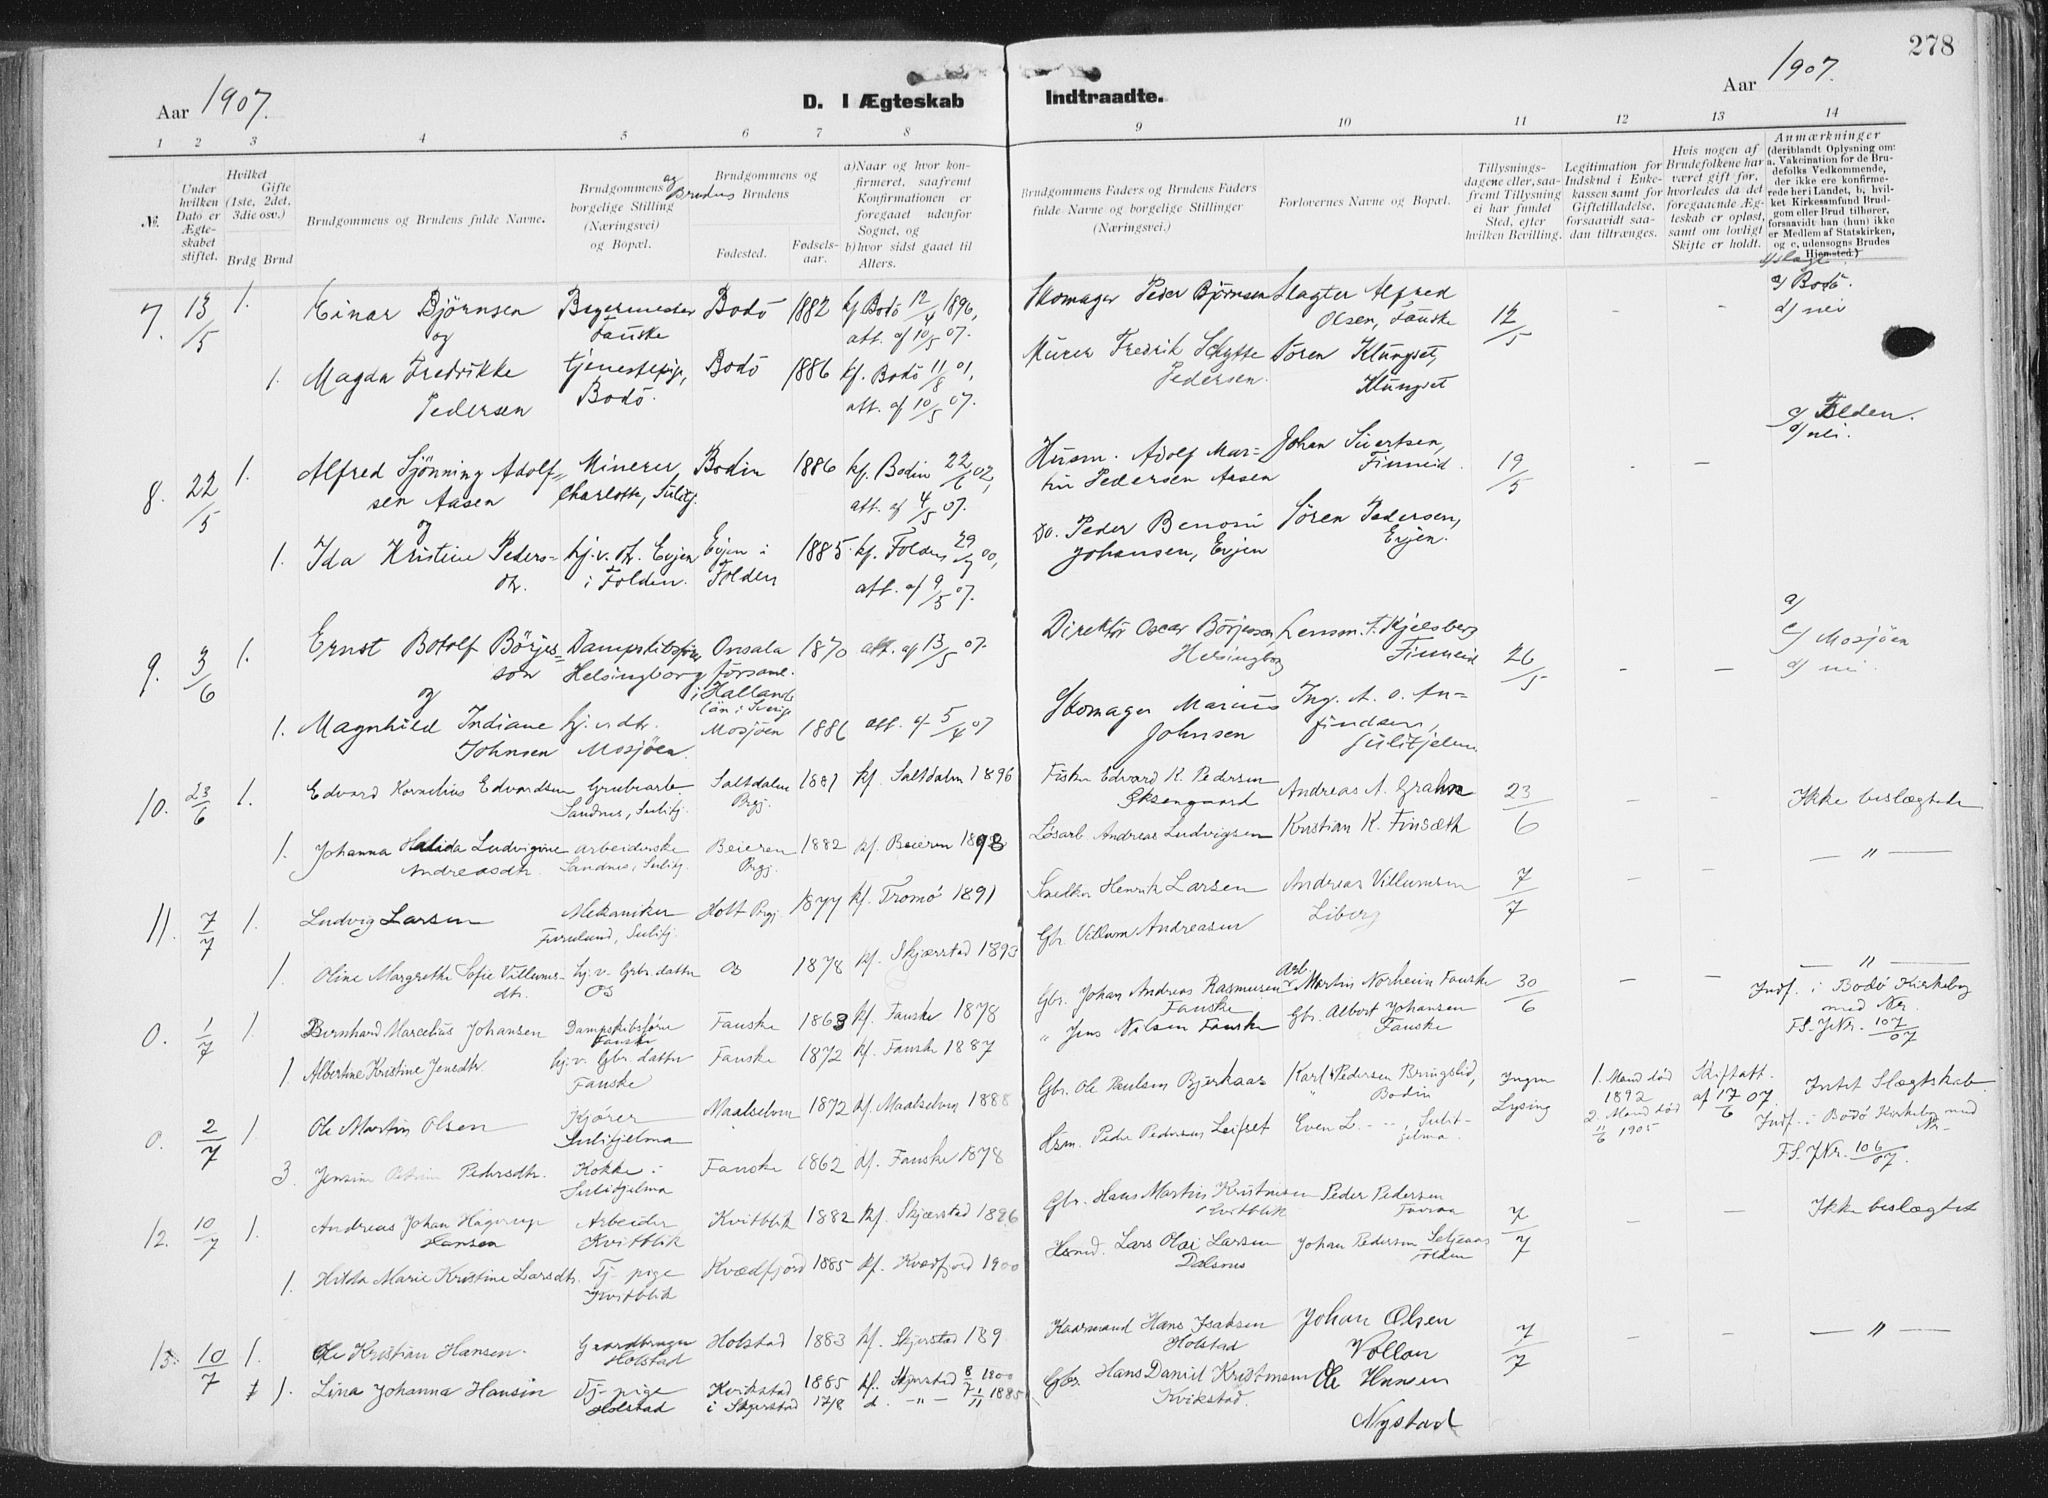 278
Aar 1907.
D. I Ægteskab Indtraadte.
Aar 1907.
1 2 3 4 5 6 7 8 9 10 11 12 13 14
№.
Under hvilken Dato er Ægteskabet stiftet.
Hvilket Gifte (1ste, 2det, 3die osv.)
Brdg Brud
Brudgommens og Brudens fulde Navne.
Brudgommens og Brudens borgelige Stilling (Næringsvei) og Bopæl.
Brudgommens og Brudens
Fødested.
Fødselsaar.
a) Naar og hvor konfirmeret, saafremt Konfirmationen er foregaaet udenfor Sognet, og
b) hvor sidst gaaet til Alters.
Brudgommens Faders og Brudens Faders fulde Navne og borgelige Stillinger (Næringsvei.)
Forlovernes Navne og Bopæl.
Tillysningsdagene eller, saafremt Tillysning ei har fundet Sted, efter hvilken Bevilling.
Legitimation for Indskud i Enkekassen samt for Giftetilladelse, forsaavidt saadan tiltrænges.
Hvis nogen af Brudefolkene har været gift før, hvorledes da det foregaaende Ægteskab er opløst, samt om lovligt Skifte er holdt.
Anmærkninger (deriblandt Oplysning om: a. Vakcination for de Brudefolks Vedkommende, der ikke ere konfirmerede her i Landet, b, hvilket Kirkesamfund Brudgom eller Brud tilhører, forsaavidt han (hun) ikke er Medlem af Statskirken, og c, udensogns Brudes Hjemsted.)
d/ slægt.
7. 13/5 1. Einar Björnsen Bagermester Bodö 1882 kf Bodö 12/4 1896, Skomager Peder Björnsen Slagter Alfred 12/5 - - c/ Bodö.
og Fauske att. af 10/5 07. Olsen, Fauske d/ nei
1. Magda Fredrikke Tjenestepige, Bodö 1886 kf. Bodö 11/8 01, Murer Fredrik Schytte Sören Klungset,
Pedersen Bodö. att. af 10/5 07. Pedersen. Klungset
8. 22/5 1. Alfred Sjönning Adolf- Minerer, Bodin 1886 kf. Bodin 22/6 02, Husm. Adolf Mar- Johan Sivertsen, 19/5 - - c/ Folden.
sen Aasen Charlotta, Sulitj. att. af 4/5 07. tin Pedersen Aasen Finneid. d/ nei.
og
1. Ida Kristine Peders- hj.v. dt. Evjen Evjen i 1885. kf. Folden 29/9 00, Do. Peder Benoni Sören Pedersen,
dtr. i Folden. Folden att. af 9/5 07. Johansen, Evjen Evjen.
9. 3/6 1. Ernst Botolf Börjes- Dampskibsförer Onsala 1870 att. af 13/5 07. Direktör Oscar Börjesson, Lensm. T. Kjelsberg 26/5 - - a/
son Helsingborg församl. Helsingborg Finneid c/ Mosjöen
og i Hallands d/ nei.
län i Sverige
1. Magnhild Indiane hj.v. dtr. Mosjöen 1886 att. af 5/4 07 Skomager Marius Ing. A. O. An-
Johnsen Mosjöen. Johnsen findsen,
Sulitjelma
10. 23/6 1. Edvard Kornelius Edvardsen Grubearb. Saltdalen 1881 kf. Saltdalen 1896 Fisker Edvard K. Pedersen Andreas A. Grahn 23/6 - - Ikke beslægtede
Sandnes, Sulitj. Prgj. Oksengaard
1. Johanna Halida Ludvigine Arbeiderske Beieren 1882 kf. Beieren 1898 Løsarb. Andreas Ludvigsen Kristian K. Finsæth
Andreasdtr. Sandnes, Sulitj. Prgj.
11. 7/7 1. Ludvig Larsen Mekaniker Holt Prgj. 1877 kf. Tromö 1891 Snedker Henrik Larsen Andreas Villumsen 7/7 - - — " —
Furulund, Sulitj. Liberg
1. Oline Margrethe Sofie Villums- hj.v. Gbr. datter Os 1878 kf. Skjærstad 1893 Gbr. Villum Andreasen
dtr. Os
0. 1/7 1. Bernhard Marcelius Johansen Dampskibsfører Fauske 1863 kf. Fauske 1878 Gbr. Johan Andreas Rasmusen Arb. Martin Norheim Fauske 30/6 - - — " —
Fauske Fauske Indf. i Bodø Kirkebog
1. Albertine Kristine Jensdtr. hj.v. Gbr. datter Fauske 1872 kf. Fauske 1887 " Jens Nilsen Fauske Gbr. Albert Johansen med Nr.
Fauske Fauske F.S. JNr. 107/07
0. 2/7 1. Ole Martin Olsen Kjører Maalselven 1872 kf. Maalselven 1888 Gbr. Ole Paulsen Bjerkaas Karl Pedersen Bringslid, Ingen 1. Mand død Skiftatt. Intet Slægtskab
Sulitjelma Bodin Lysing 1892 af 17/6 07. Indf. i Bodø Kirkebog med
2. Mand død Nr.
3. Jensine Petrine Pedersdtr. Kokke i Fauske 1862 kf. Fauske 1878 Hsm. Peder Pedersen Leifset Even L. - - , Sulit- 11/6 1905 F.S. JNr. 106/07.
Sulitjelma jelma.
12. 10/7 1. Andreas Johan Hagerup Arbeider Kvitblik 1882 kf. Skjærstad 1896 Gbr. Hans Martin Kristensen Peder Pedersen 7/7 - - Ikke beslægtet
Hansen Kvitblik Kvitblik
1. Hilda Marie Kristine Larsdtr. Tj. pige Kvædfjord 1885 kf. Kvædfjord 1900 Hsmd. Lars Olai Larsen Johan Pedersen
Kvitblik Folden
13. 10/7 1. Ole Kristian Hansen. Gaardbruger Holstad 1883 kf. Skjerstad 189 Kaarmand Hans Isaksen Johan Olsen 7/7 - - — " —
Holstad Holstad Vollan
1. Lina Johanna Hansen Tj. pige Kvikstad 1885 kf. Skjerstad 8/7 1900 Gbr. Hans Daniel Kristensen Ole Hansen
Holstad i Skjerstad 17/8 d. - " - 1/11 1885 Kvikstad. Nystad